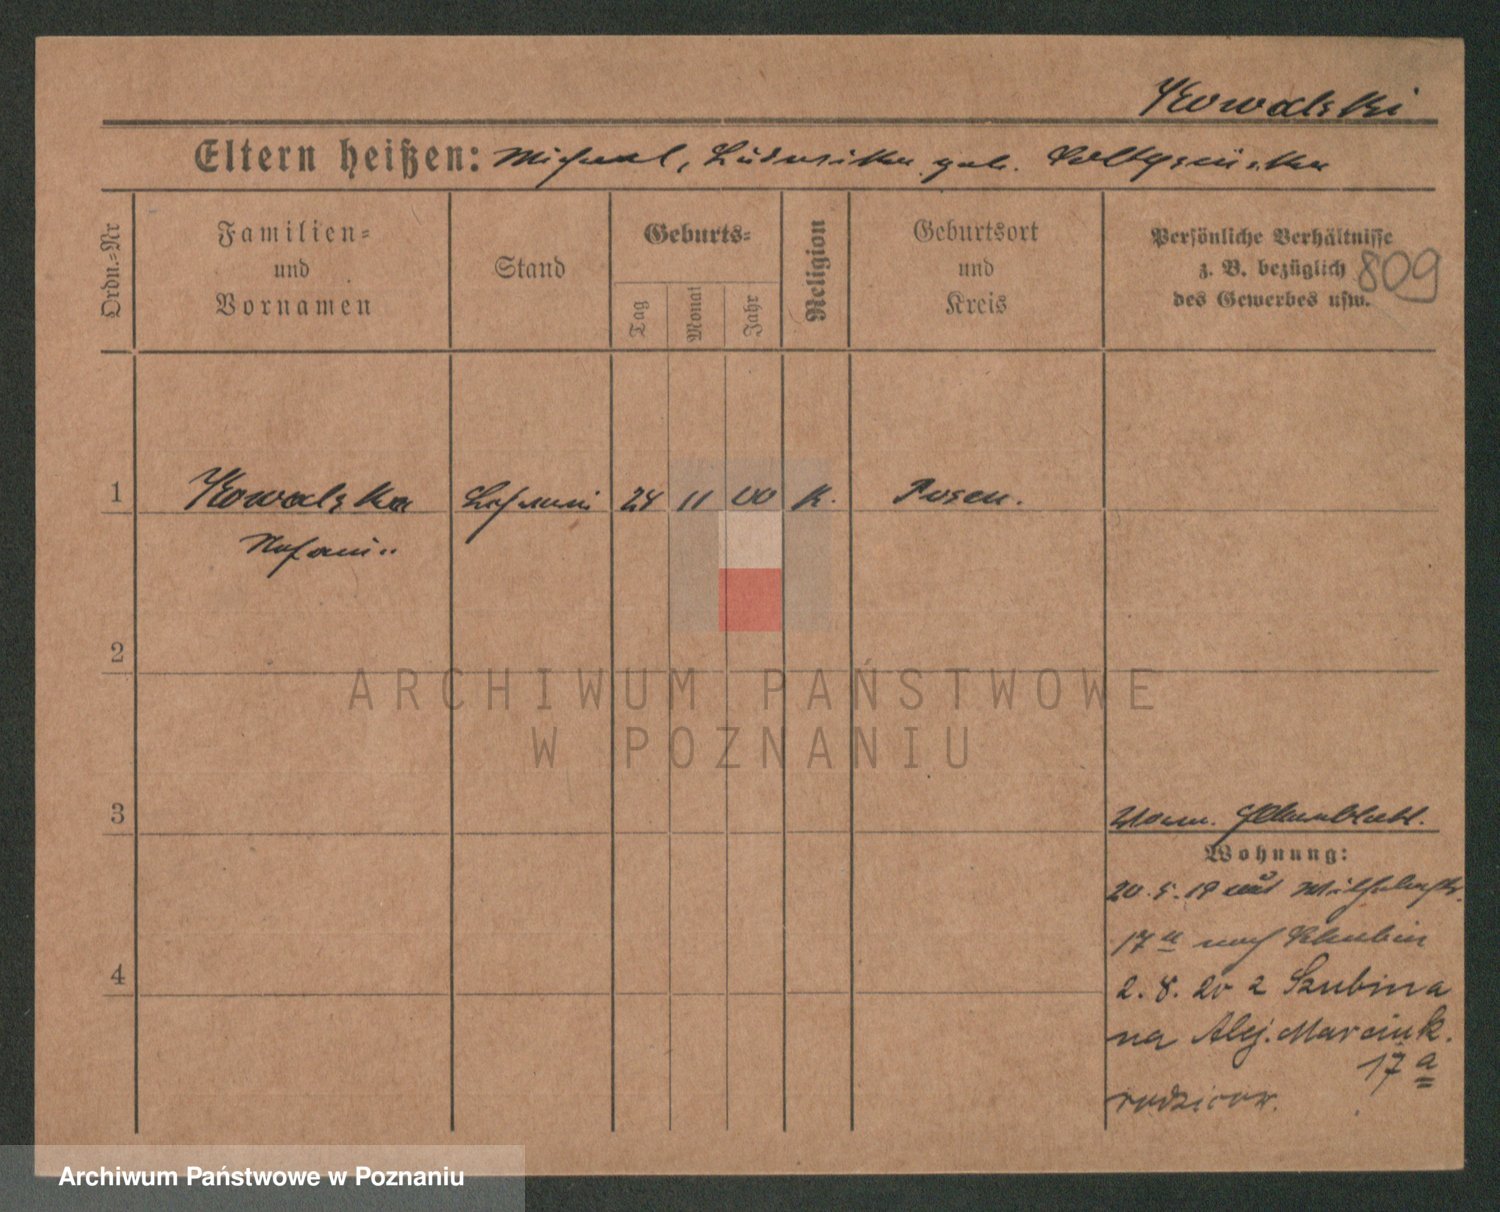 Kowalski
Eltern heißen: Michael, Ludwika geb.
Ordn.-Nr
Familien- und Vornamen
Stand
Geburts-
Tag
Monat
Jahr
Religion
Geburtsort und Kreis
Persönliche Verhältnisse
z. B. bezüglich
des Gewerbes usw.
809
1 Kowalska 24 11 00 K. Posen.
Stefani
2
3
4
Wohnung:
17 a nach Schubin
2. 8. 20 z Szubina
na Alej. Marcink.
17 a
rodziców.
ARCHIWUM PAŃSTWOWE
W POZNANIU
Archiwum Państwowe w Poznaniu